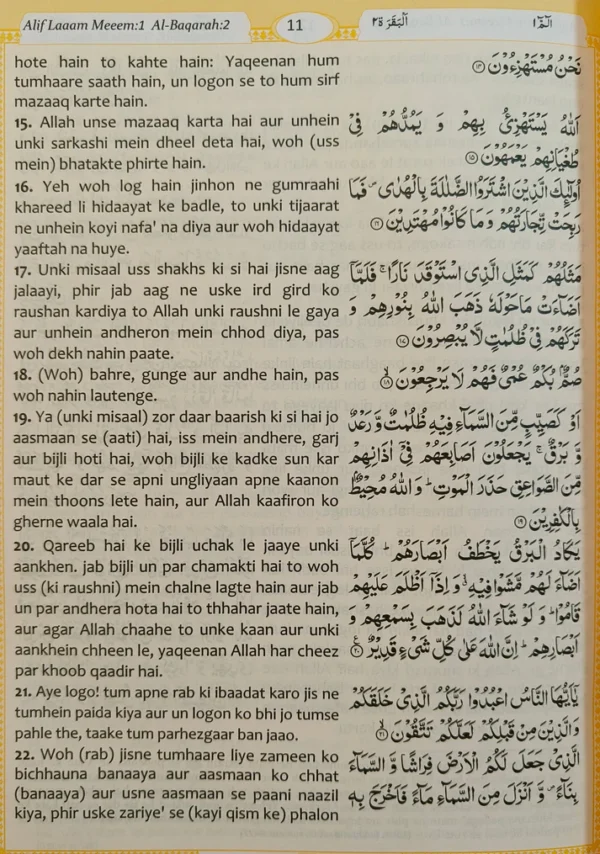 Alif Laaam Meeem:1 Al-Baqarah:2
11
اَلْبَقَرَة ٢
الٓمّٓ ١
hote hain to kahte hain: Yaqeenan hum
tumhaare saath hain, un logon se to hum sirf
mazaaq karte hain.
15. Allah unse mazaaq karta hai aur unhein
unki sarkashi mein dheel deta hai, woh (uss
mein) bhatakte phirte hain.
16. Yeh woh log hain jinhon ne gumraahi
khareed li hidaayat ke badle, to unki tijaarat
ne unhein koyi nafa' na diya aur woh hidaayat
yaaftah na huye.
17. Unki misaal uss shakhs ki si hai jisne aag
jalaayi, phir jab aag ne uske ird gird ko
raushan kardiya to Allah unki raushni le gaya
aur unhein andheron mein chhod diya, pas
woh dekh nahin paate.
18. (Woh) bahre, gunge aur andhe hain, pas
woh nahin lautenge.
19. Ya (unki misaal) zor daar baarish ki si hai jo
aasmaan se (aati) hai, iss mein andhere, garj
aur bijli hoti hai, woh bijli ke kadke sun kar
maut ke dar se apni ungliyaan apne kaanon
mein thoons lete hain, aur Allah kaafiron ko
gherne waala hai.
20. Qareeb hai ke bijli uchak le jaaye unki
aankhen. jab bijli un par chamakti hai to woh
uss (ki raushni) mein chalne lagte hain aur jab
un par andhera hota hai to thhahar jaate hain,
aur agar Allah chaahe to unke kaan aur unki
aankhein chheen le, yaqeenan Allah har cheez
par khoob qaadir hai.
21. Aye logo! tum apne rab ki ibaadat karo jis ne
tumhein paida kiya aur un logon ko bhi jo tumse
pahle the, taake tum parhezgaar ban jaao.
22. Woh (rab) jisne tumhaare liye zameen ko
bichhauna banaaya aur aasmaan ko chhat
(banaaya) aur usne aasmaan se paani naazil
kiya, phir uske zariye' se (kayi qism ke) phalon
نَحْنُ مُسْتَهْزِءُوْنَ ١٤
اَللّٰهُ يَسْتَهْزِئُ بِهِمْ وَ يَمُدُّهُمْ فِيْ
طُغْيَانِهِمْ يَعْمَهُوْنَ ١٥
اُولٰٓئِكَ الَّذِيْنَ اشْتَرَوُا الضَّلٰلَةَ بِالْهُدٰى ۪ فَمَا
رَبِحَتْ تِّجَارَتُهُمْ وَمَا كَانُوْا مُهْتَدِيْنَ ١٦
مَثَلُهُمْ كَمَثَلِ الَّذِي اسْتَوْقَدَ نَارًا ۚ فَلَمَّآ
اَضَآءَتْ مَا حَوْلَهٗ ذَهَبَ اللّٰهُ بِنُوْرِهِمْ وَ
تَرَكَهُمْ فِيْ ظُلُمٰتٍ لَّا يُبْصِرُوْنَ ١٧
صُمٌّۢ بُكْمٌ عُمْيٌ فَهُمْ لَا يَرْجِعُوْنَ ١٨
اَوْ كَصَيِّبٍ مِّنَ السَّمَآءِ فِيْهِ ظُلُمٰتٌ وَّ رَعْدٌ
وَّ بَرْقٌ ۚ يَجْعَلُوْنَ اَصَابِعَهُمْ فِيْٓ اٰذَانِهِمْ
مِّنَ الصَّوَاعِقِ حَذَرَ الْمَوْتِ ؕ وَاللّٰهُ مُحِيْطٌۢ
بِالْكٰفِرِيْنَ ١٩
يَكَادُ الْبَرْقُ يَخْطَفُ اَبْصَارَهُمْ ؕ كُلَّمَآ
اَضَآءَ لَهُمْ مَّشَوْا فِيْهِ ۙ وَ اِذَآ اَظْلَمَ عَلَيْهِمْ
قَامُوْا ؕ وَ لَوْ شَآءَ اللّٰهُ لَذَهَبَ بِسَمْعِهِمْ وَ
اَبْصَارِهِمْ ؕ اِنَّ اللّٰهَ عَلٰى كُلِّ شَيْءٍ قَدِيْرٌ ٢٠
يٰٓاَيُّهَا النَّاسُ اعْبُدُوْا رَبَّكُمُ الَّذِيْ خَلَقَكُمْ
وَالَّذِيْنَ مِنْ قَبْلِكُمْ لَعَلَّكُمْ تَتَّقُوْنَ ٢١
الَّذِيْ جَعَلَ لَكُمُ الْاَرْضَ فِرَاشًا وَّ السَّمَآءَ
بِنَآءً ۪ وَّ اَنْزَلَ مِنَ السَّمَآءِ مَآءً فَاَخْرَجَ بِهٖ